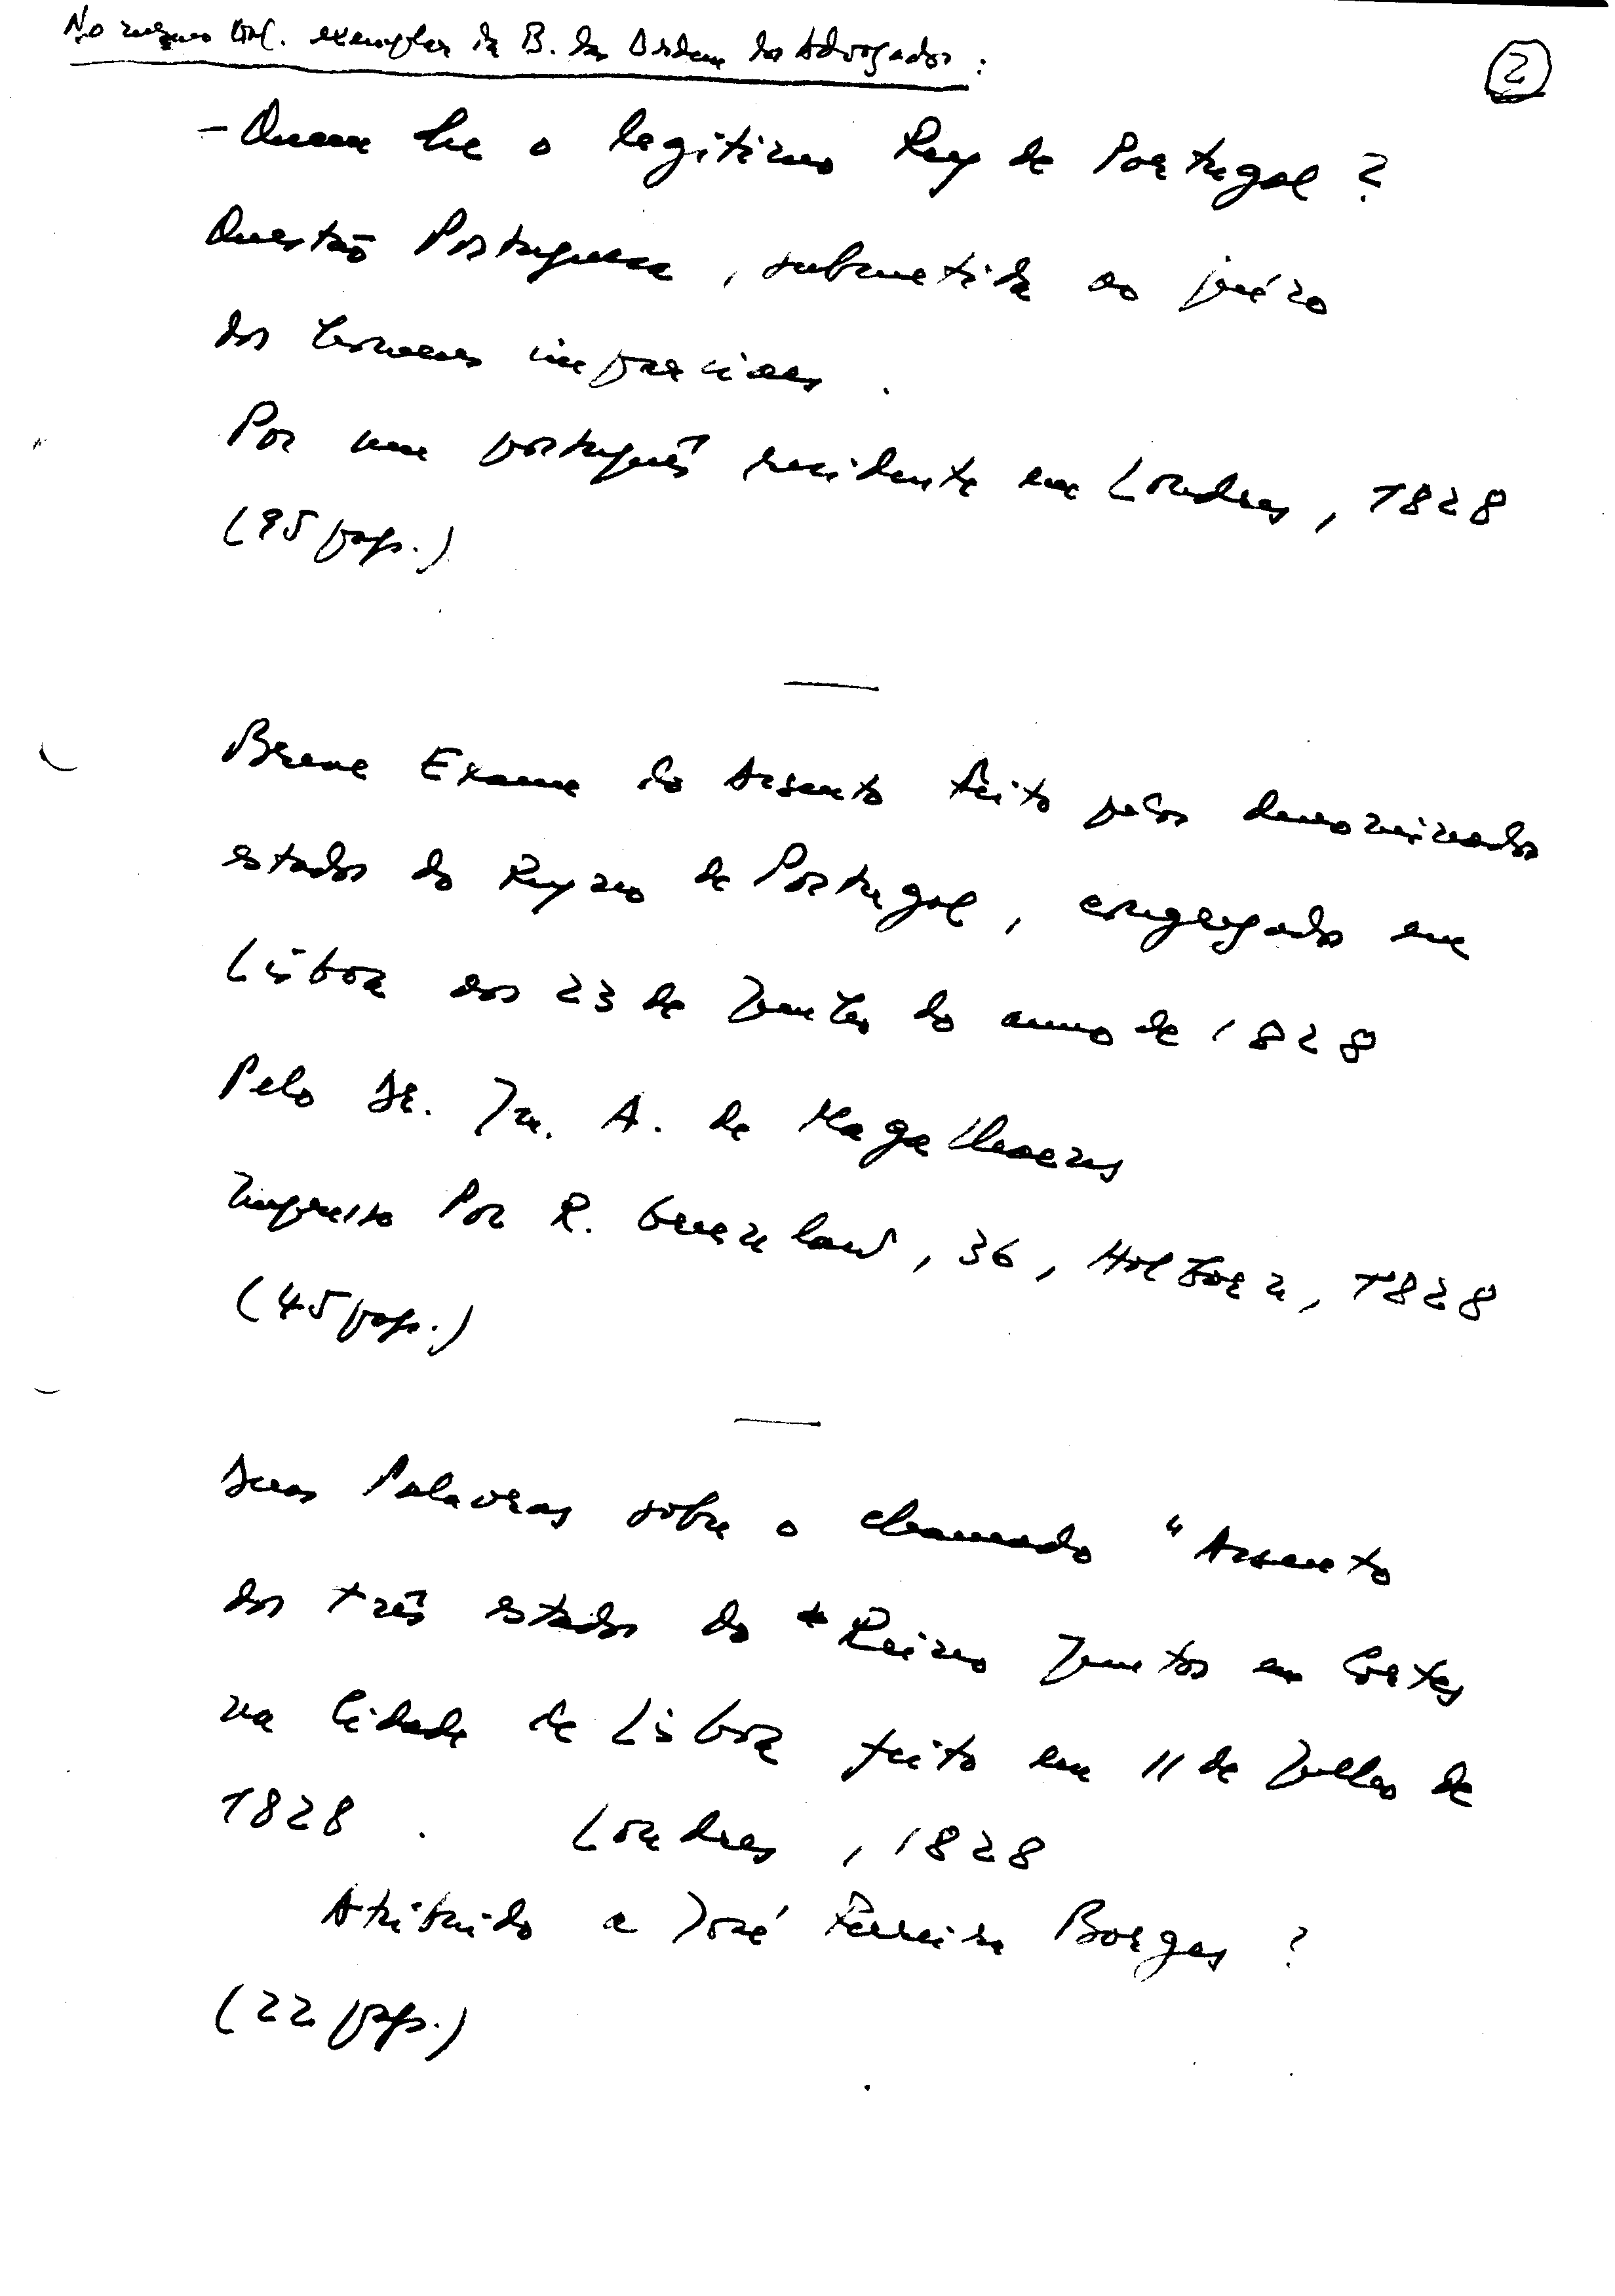 No mesmo vol. exemplar da B. da Ordem dos Advogados :
2
- Quem he o legitimo Rey de Portugal ?
Questão Portuguesa , submetida ao juízo
dos homens imparciaes .
Por um português residente em Londres , 1828
(95 pags.)
Breve Exame do Assento feito pelos denominados
estados do Reyno de Portugal , congregados em
Lisboa aos 23 de Junho do anno de 1828
Pelo Dr. Jn. A. de Magalhaens
Impresso Por R. Greenlaw , 36 , Holborn , 1828
(45 pags.)
Duas Palavras sobre o chamado " Assento
dos três estados do Reino Juntos em Cortes
na Cidade de Lisboa feito em 11 de Julho de
1828 . Londres , 1828
Atribuido a José Ferreira Borges ?
(22 pags.)